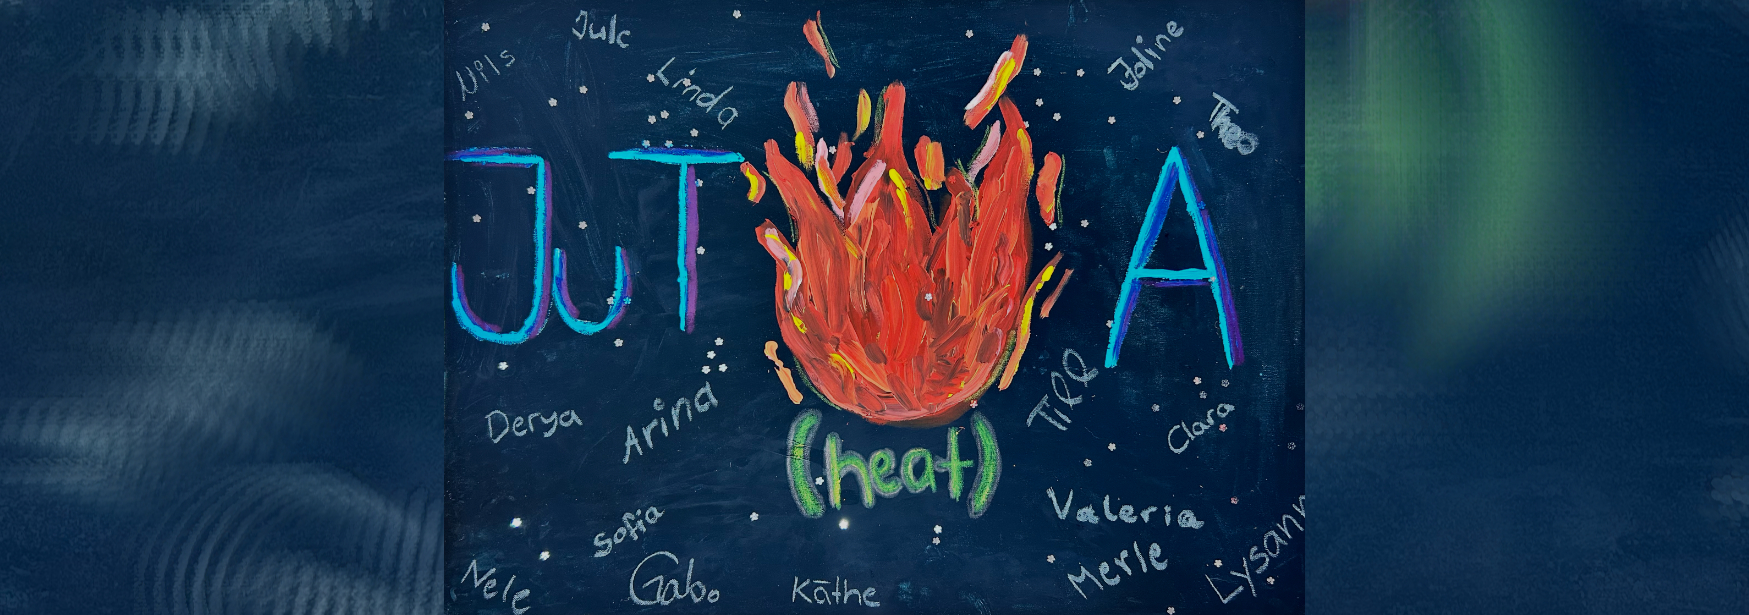 Jule
Joline
Nils
Linda
Theo
JuT A
Till
Derya
Arina
Clara
(heat)
Valeria
Sofia
Merle
Lysann
Nele
Gabo
Käthe